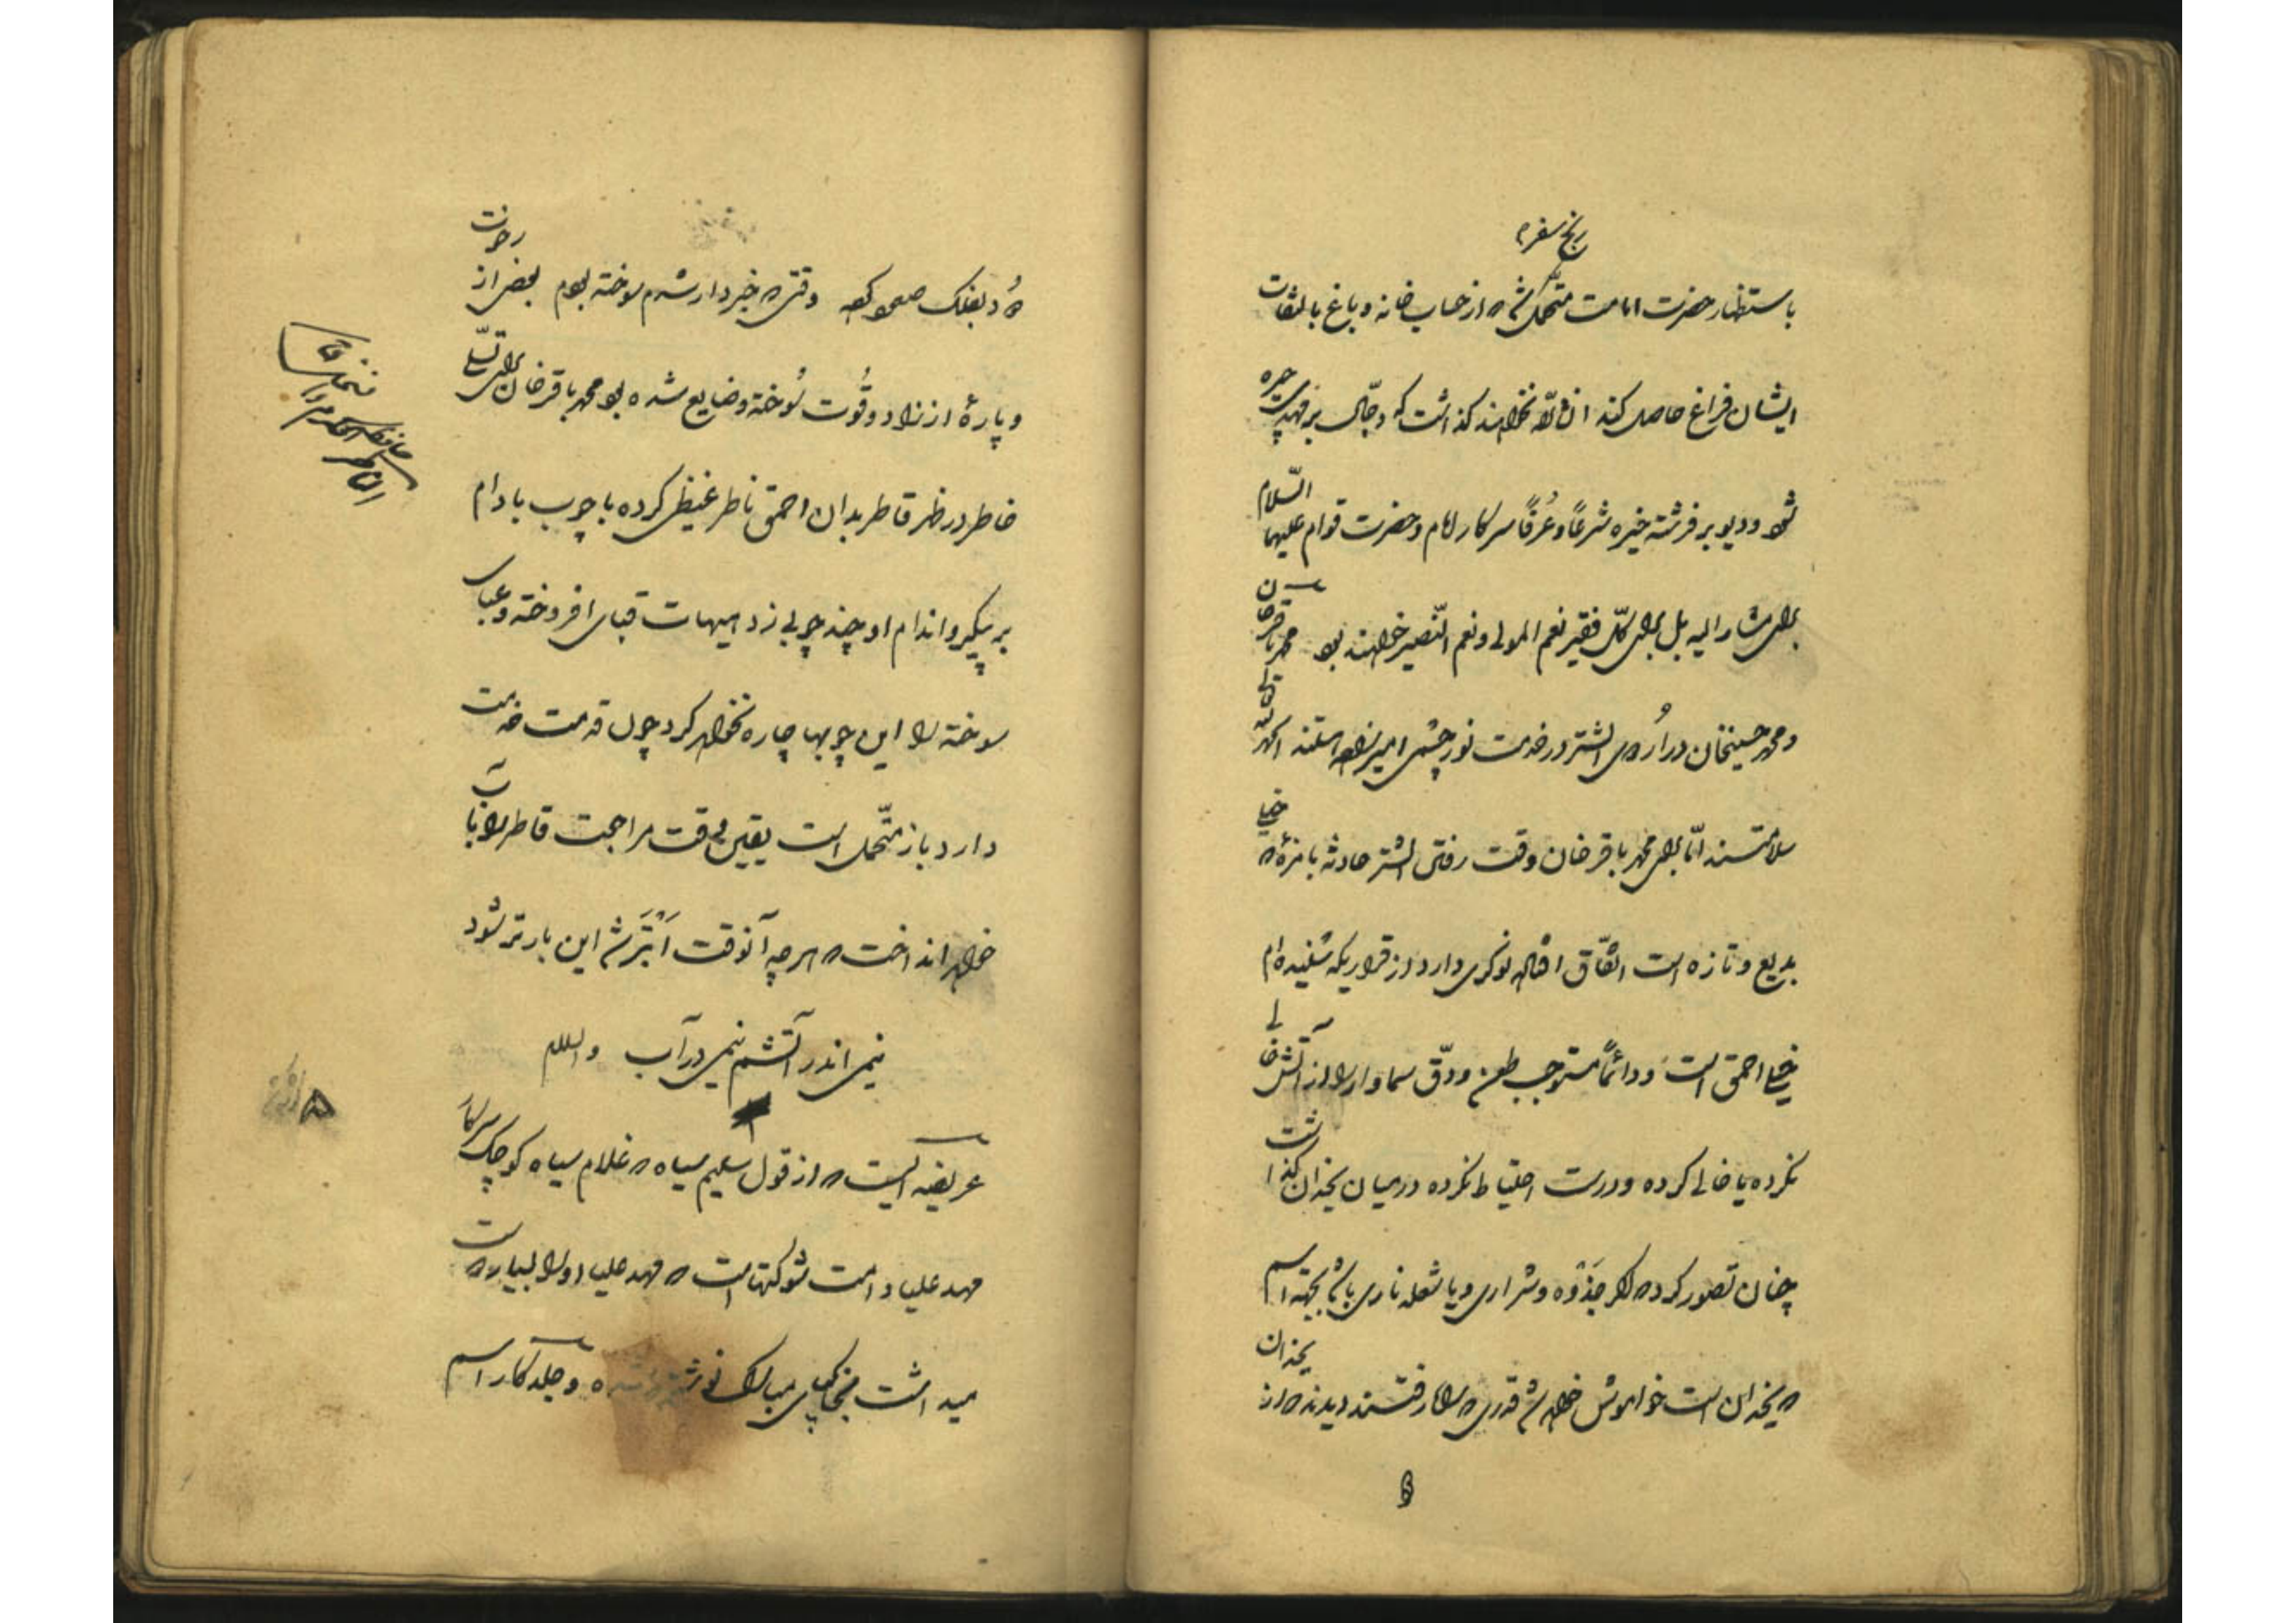 رنج سفر
باستظهار حضرت امامت متحمّل شد که از حساب خانه و باغ بالتفات
ایشان فراغ حاصل کند ان شاء الله نخواهند گذاشت که دجّال بر مهدی چیره
شود و دیو بر فرشته خیره شرعاً و عُرفاً سرکار امام و حضرت قوام علیهما السّلام
برای مشارالیه بل برای کلّ فقیر نعم المولی و نعم النّصیر خواهند بود محمد باقر خان
و محمد حسینخان در اُردوی الشتر در خدمت نور چشمی امیرزاده هستند الحمد لله تعالی
سلامتند امّا برای محمد باقر خان وقت رفتن الشتر حادثه بامزهٔ که خیلی
بدیع و تازه است اتّفاق افتاد نوکری دارد از قراریکه شنیده‌ام
خیلی احمق است و دائماً مستوجب طعن و دقّ سماوار را از آتش خالی
نکرده یا خالی کرده و درست احتیاط نکرده در میان یخدان گذاشت
چنان تصور کرده که اگر جَذْوه و شراری و یا شعله ناری باشد بجهة اسم
که یخدان است خواموش خواهد شد قدری که راه رفتند دیدند که از یخدان
دود بفلک صعود کرد وقتی که خبردار شدم سوخته بود بعضی از رخوت
و پارهٔ از زاد و قُوت سُوخته و ضایع شده بود محمد باقر خان برای تسلّی
خاطر در ظهر قاطر بدان احمق ناطر غیظ کرده با چوب بادام
بر پیکر و اندام او چند چوبی زد هیهات قبای افروخته و عبای
سوخته را این چوبها چاره نخواهد کرد چون قدمت خدمت
دارد باز متحمّل است یقین وقت مراجعت قاطر را باب
خواهد انداخت که هر چه آنوقت اَبْتَر شد این بار تر شود
نیمی اندر آتشم نیمی در آب والسلام
عریضه ایست که از قول سلیم سیاه که غلام سیاه کوچک سرکار
مهد علیا دامت شوکتها است که مهد علیا او را بسیار دوست
میداشت بخاکپای مبارک نوشته شده و جلد کار اسم